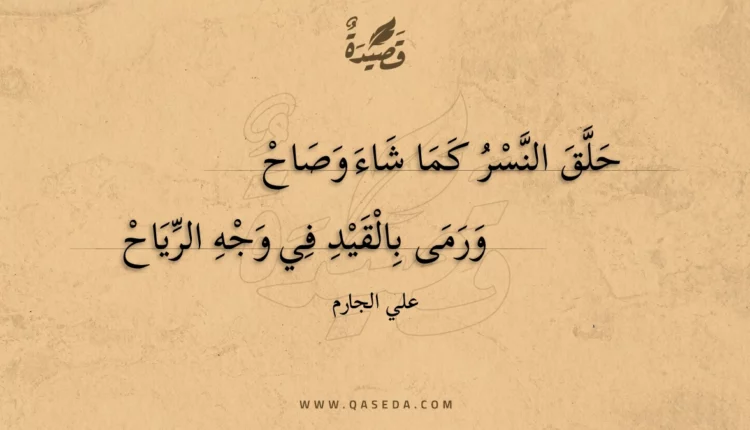 قَصِيدَةٌ
حَلَّقَ النَّسْرُ كَمَا شَاءَ وَصَاحْ
وَرَمَى بِالْقَيْدِ فِي وَجْهِ الرِّيَاحْ
علي الجارم
WWW.QASEDA.COM